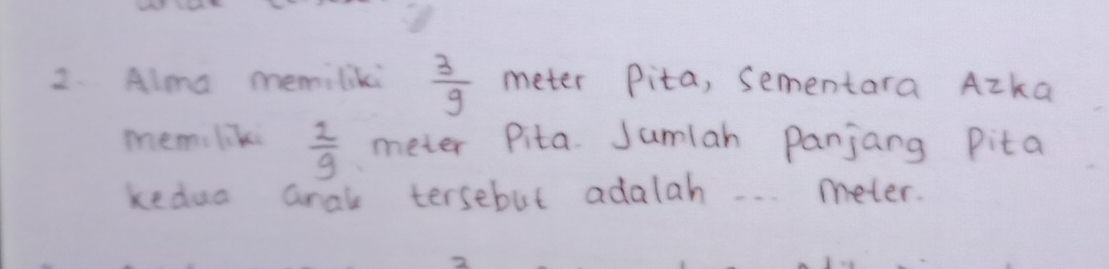 2. Alma memiliki 3/9 meter Pita, Sementara Azka
memiliki 2/9 meter Pita. Jumlah Panjang Pita
kedua anak tersebut adalah ... meter.